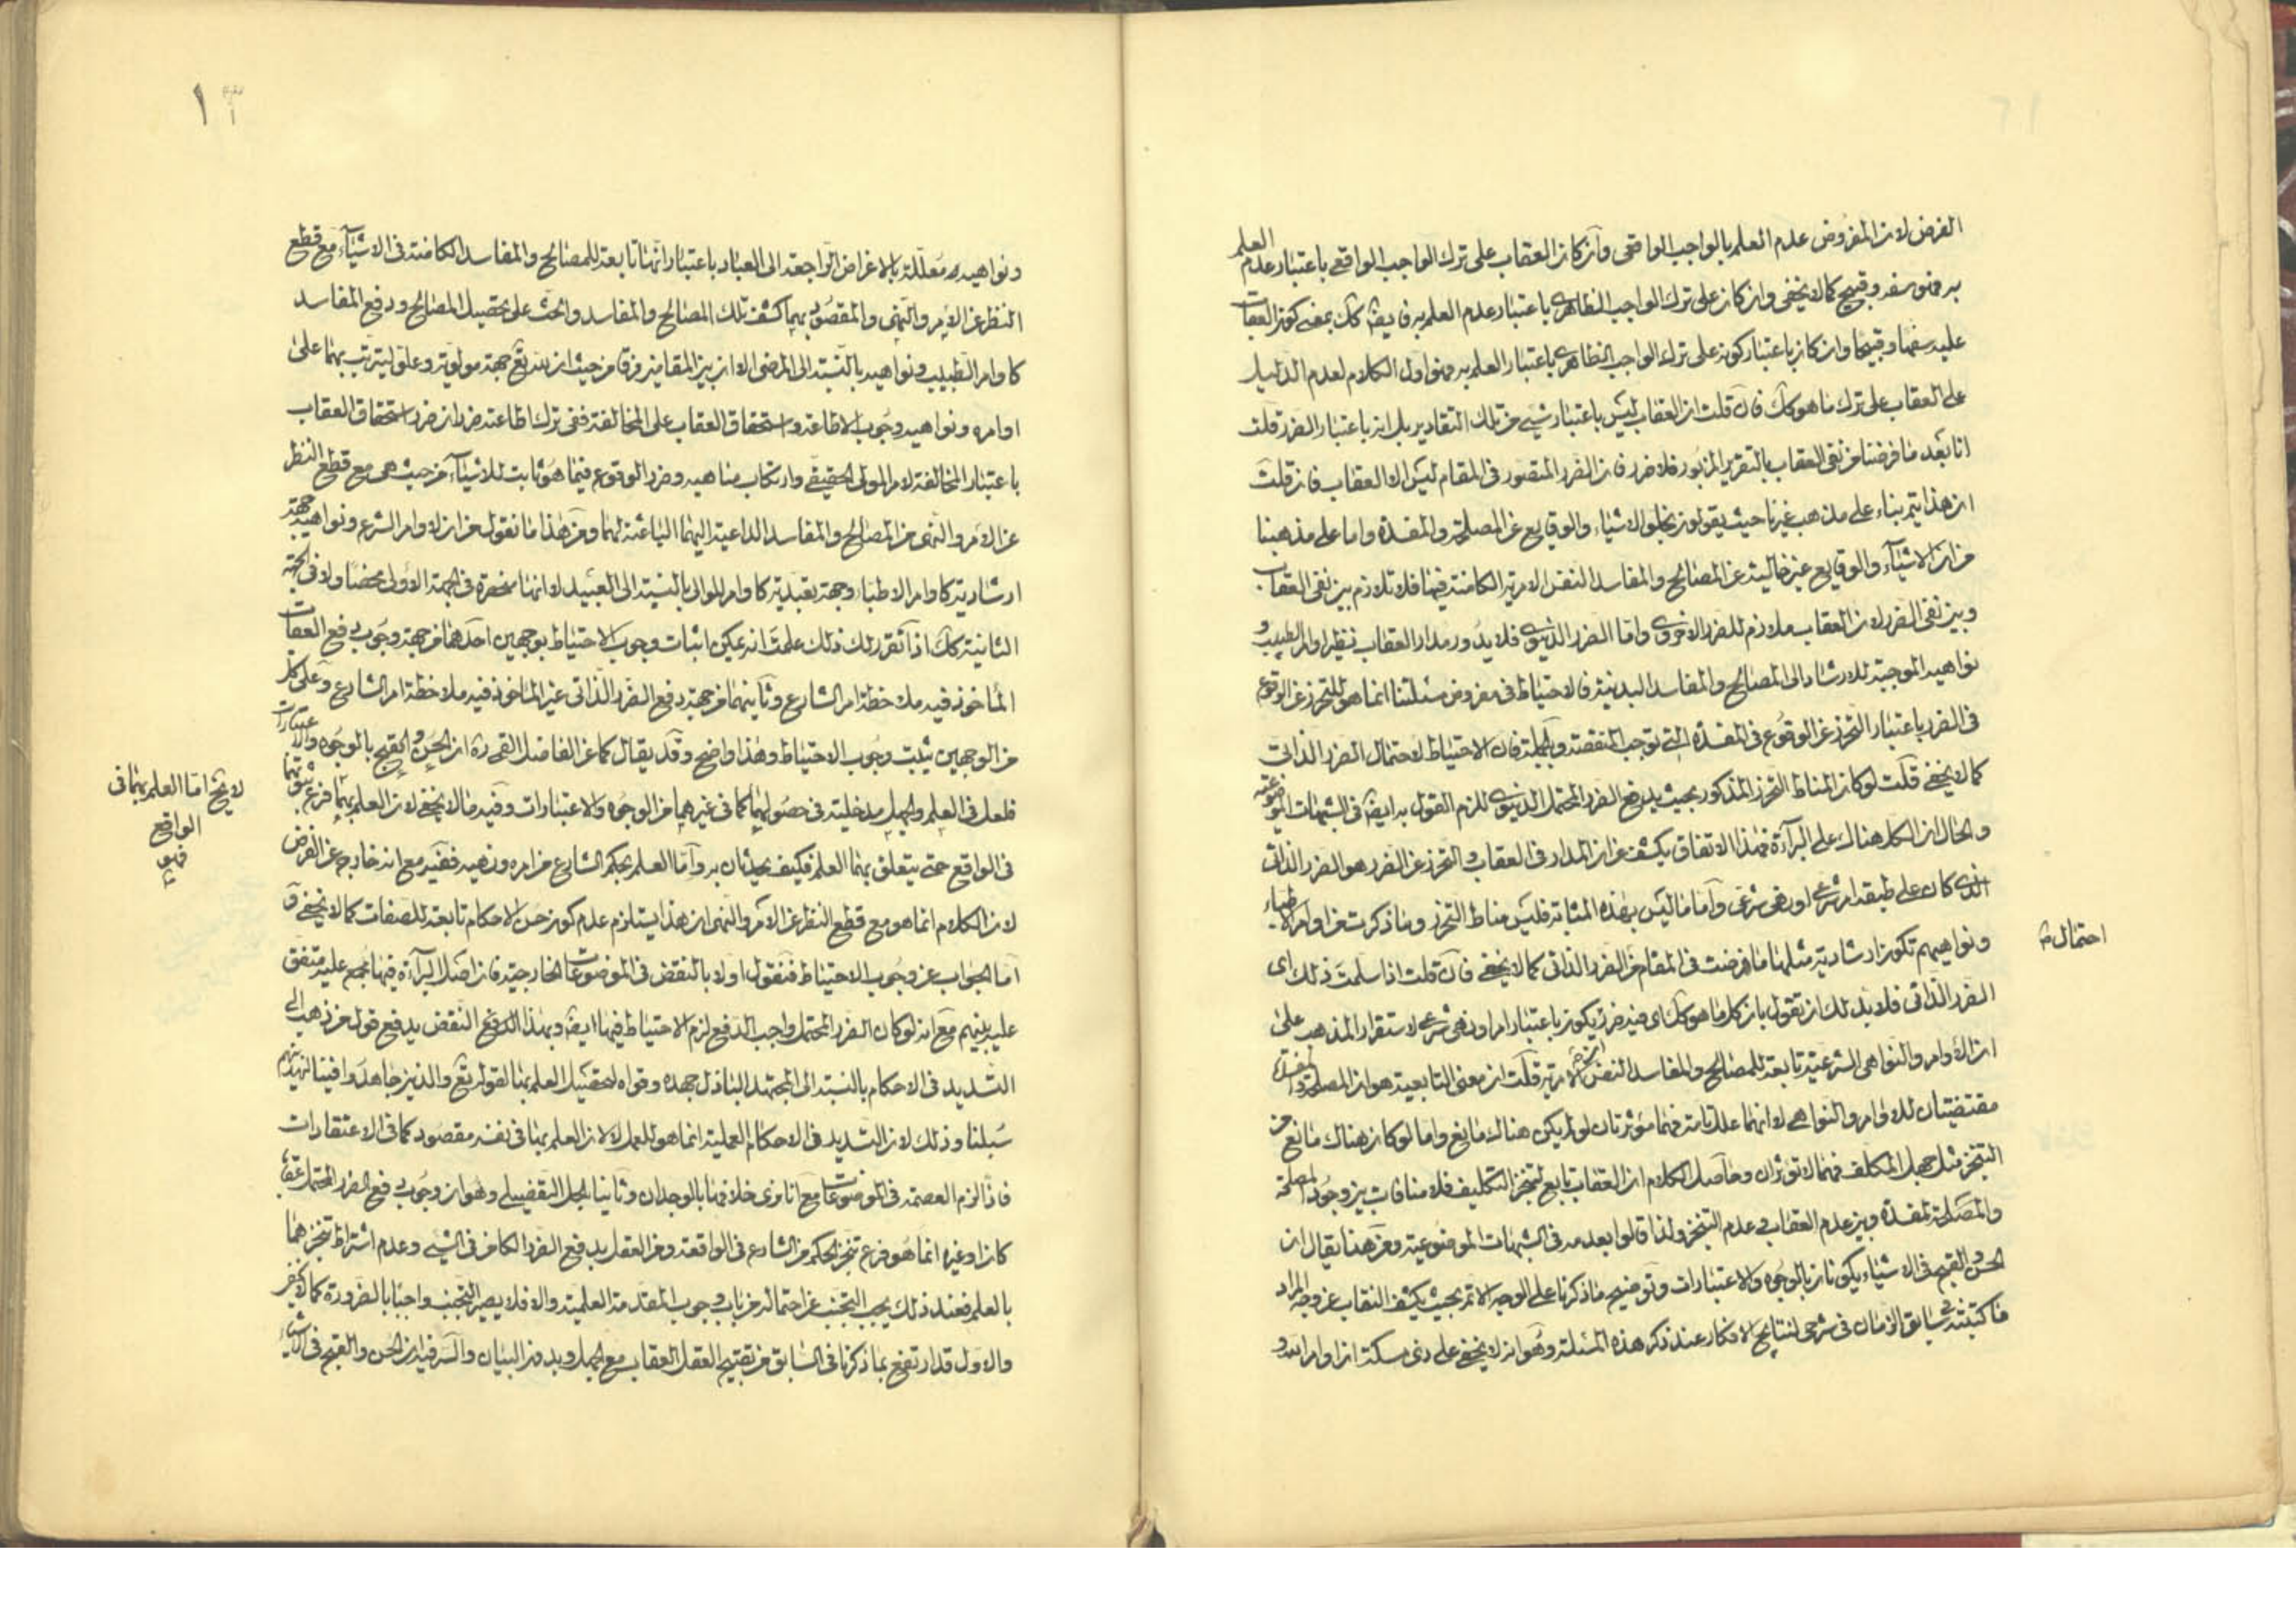 الفرض لان المفروض عدم العلم بالواجب الواقعى وان كان العقاب على ترك الواجب الواقعى باعتبار عدم العلم
به فهو سفه وقبيح كما لا يخفى وان كان على ترك الواجب الظاهرى باعتبار عدم العلم به فايضا كك بمعنى كون العقاب
عليه سفها وقبيحا وان كان باعتبار كونه على ترك الواجب الظاهرى باعتبار العلم به فهو اول الكلام لعدم الدليل
على العقاب على ترك ما هو كك فان قلت ان العقاب ليس باعتبار شىء من تلك التقادير بل انه باعتبار الضرر قلت
انا بعد ما فرضنا من نفى العقاب بالتقرير المزبور فلا ضرر فان الضرر المتصور فى المقام ليس الا العقاب فان قلت
ان هذا يتم بناء على مذهب غيرنا حيث يقولون بخلو الاشياء والوقايع عن المصلحة والمفسدة واما على مذهبنا
من ان الاشياء والوقايع غير خالية عن المصالح والمفاسد النفس الامرية الكامنة فيها فلا تلازم بين نفى العقاب
وبين نفى الضرر لان العقاب ملازم للضرر الاخروى واما الضرر الدنيوى فلا يدور مدار العقاب نظير اوامر الطبيب و
نواهيه الموجبة للارشاد الى المصالح والمفاسد البدنية فالاحتياط فى مفروض مسئلتنا انما هو للتحرز عن الوقوع
فى الضرر باعتبار التحرز عن الوقوع فى المفسدة التى توجب المنقصة وبالجملة فان الاحتياط لاحتمال الضرر الذاتى
كما لا يخفى قلت لو كان المناط التحرز المذكور بحيث يدفع الضرر المحتمل الدنيوى للزم القول به ايضا فى الشبهات الموضوعية
والحال ان الكل هناك على البرآءة فهذا الاتفاق يكشف عن ان المدار فى العقاب والتحرز عن الضرر هو الضرر الذاتى
الذى كان على طبقه امر شرعى او نهى شرعى واما ما ليس بهذه المثابة فليس مناط التحرز وما ذكرت من اوامر الاطباء
ونواهيهم تكون ارشادية مثلها ما فرضت فى المقام من الضرر الذاتى كما لا يخفى فان قلت اذا سلمت ذلك اى
احتمال
الضرر الذاتى فلا بد لك ان تقول بان كل ما هو كك اى فيه ضرر يكون باعتبار امر او نهى شرعى لاستقرار المذهب على
ان الاوامر والنواهى الشرعية تابعة للمصالح والمفاسد النفس الامرية قلت ان معنى التابعية هو ان المصلحة والمفسدة
مقتضيتان للاوامر والنواهى لا انهما علة تامة فهما مؤثرتان لو لم يكن هناك مانع واما لو كان هناك مانع من
التنجز مثل جهل المكلف فهما لا تؤثران وحاصل الكلام ان العقاب تابع لتنجز التكليف فلا منافات بين وجود المصلحة
والمفسدة وبين عدم العقاب فى عدم التنجز ولذا قالوا بعدمه فى الشبهات الموضوعية ومن هنا يقال ان
الحسن والقبح فى الاشياء يكونان بالوجوه والاعتبارات وتوضيح ما ذكرنا على الوجه الاتم بحيث يكشف النقاب عن وجه المراد
ما كتبته فى سابق الزمان فى شرحى لنتايج الافكار عند ذكر هذه المسئلة وهو انه لا يخفى على ذى مسكة ان اوامر الله و
١٣
ونواهيه معللة بالاغراض الراجعة الى العباد باعتبار انها تابعة للمصالح والمفاسد الكامنة فى الاشيآء مع قطع
النظر عن الامر والنهى والمقصود بهما كشف تلك المصالح والمفاسد والحث على تحصيل المصالح ودفع المفاسد
كاوامر الطبيب ونواهيه بالنسبة الى المرضى الا ان بين المقامين فرقا من حيث ان لله تعالى جهة مولوية وعلو ليترتب بهما على
اوامره ونواهيه وجوب الاطاعة واستحقاق العقاب على المخالفة ففى ترك اطاعته ضرران ضرر استحقاق العقاب
باعتبار المخالفة لامر المولى الحقيقى وارتكاب مناهيه وضرر الوقوع فيما هو ثابت للاشيآء من حيث هى مع قطع النظر
عن الامر والنهى من المصالح والمفاسد الداعية اليهما الباعثة لهما ومن هذا ما نقول من ان لاوامر الشرع ونواهيه جهة
ارشادية كاوامر الاطباء وجهة تعبدية كاوامر الموالى بالنسبة الى العبيد لا انها منحصرة فى الجهة الاولى محضا ولا فى الجهة
الثانية كك اذا تقرر لك ذلك علمت انه يمكن اثبات وجوب الاحتياط بوجهين احدهما من جهة وجوب دفع العقاب
المأخوذ فيه ملاحظة امر الشارع وثانيهما من جهة دفع الضرر الذاتى غير الماخوذ فيه ملاحظة امر الشارع وعلى كل
من الوجهين يثبت وجوب الاحتياط وهذا واضح وقد يقال كما عن الفاضل القمى ره ان الحسن والقبح بالوجوه والاعتبارات
فلعل فى العلم والجهل مدخلية فى حصولهما كما فى غيرهما من الوجوه والاعتبارات وفيه ما لا يخفى لان العلم بهما فرع ثبوتهما
لا يخ اما العلم بهما فى
الواقع
فى الواقع حتى يتعلق بهما العلم فكيف يحدثان به واما العلم بحكم الشارع من امره ونهيه ففيه مع انه خارج عن الفرض
لان الكلام انما هو مع قطع النظر عن الامر والنهى ان هذا يستلزم عدم كون حسن الاحكام تابعة للصفات كما لا يخفى و
اما الجواب عن وجوب الاحتياط فنقول اولا بالنقض فى الموضوعات الخارجية فان اصل البرآءة فيها مجمع عليه متفق
عليه بينهم مع انه لو كان الضرر المحتمل واجب الدفع لزم الاحتياط فيها ايضا وبهذا النقض يدفع قول من ذهب الى
التشديد فى الاحكام بالنسبة الى المجتهد الباذل جهده وقواه لتحصيل العلم بها لقوله تعالى والذين جاهدوا فينا لنهدينهم
سبلنا وذلك لان التشديد فى الاحكام العملية انما هو للعمل لا لان العلم بها فى نفسه مقصود كما فى الاعتقادات
فاذا لزم العصمة فى الموضوعات مع انا نرى خلافها بالوجدان وثانيا بالحل التفصيلى وهو ان وجوب دفع الضرر المحتمل عقابا
كان او غيره انما هو فرع تنجز الحكم من الشارع فى الواقعة ومن العقل بدفع الضرر الكامن فى الشىء وعدم اشتراط تنجزهما
بالعلم فعند ذلك يجب التجنب عن احتماله من باب وجوب المقدمة العلمية والا فلا يصير التجنب واجبا بالضرورة كما لا يخفى
والاول قد ارتفع بما ذكرنا فى السابق من تقبيح العقل العقاب مع الجهل وبدون البيان والسر فيه ان الحسن والقبح فى الاشياء